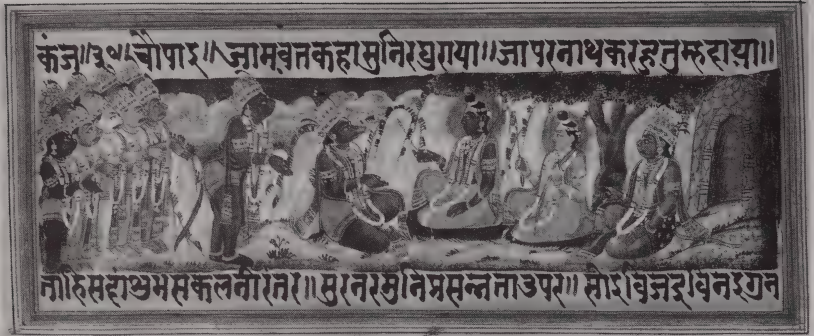 कंज॥३४॥चौपाइ॥जामवतकहासुनिरघुराया॥जापरनाथकरहतुम्हदाया॥
ताहिसदांशुभसकलनीरंतर॥सुरनरमुनिप्रसन्नताउपर॥सोइविजइविनइगुन